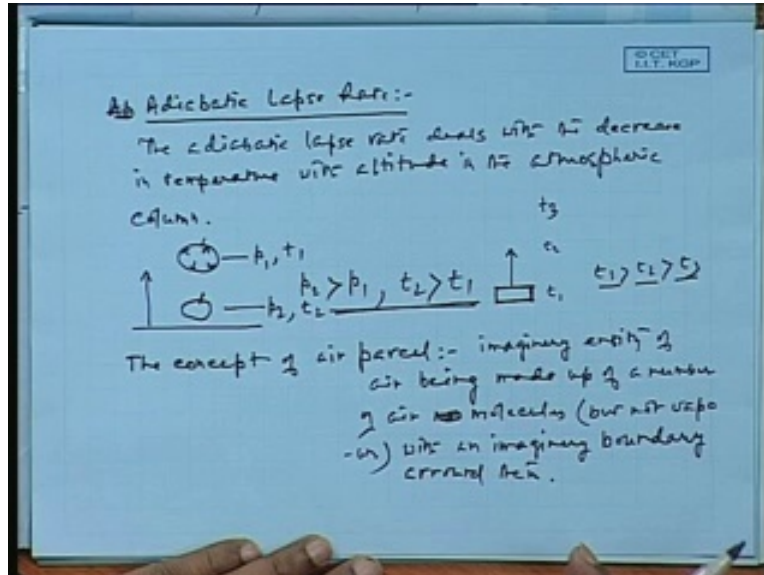 © CET
I.I.T. KGP
Adiabatic Lapse Rate:-
The adiabatic lapse rate deals with the decrease
in temperature with altitude in the atmospheric
column.
t3
p1, t1
t2
p2 > p1, t2 > t1
t1
t1 > t2 > t3
p2, t2
The concept of air parcel:- imaginary entity of
air being made up of a number
of air molecules (but not vapo
-ur) with an imaginary boundary
arround them.